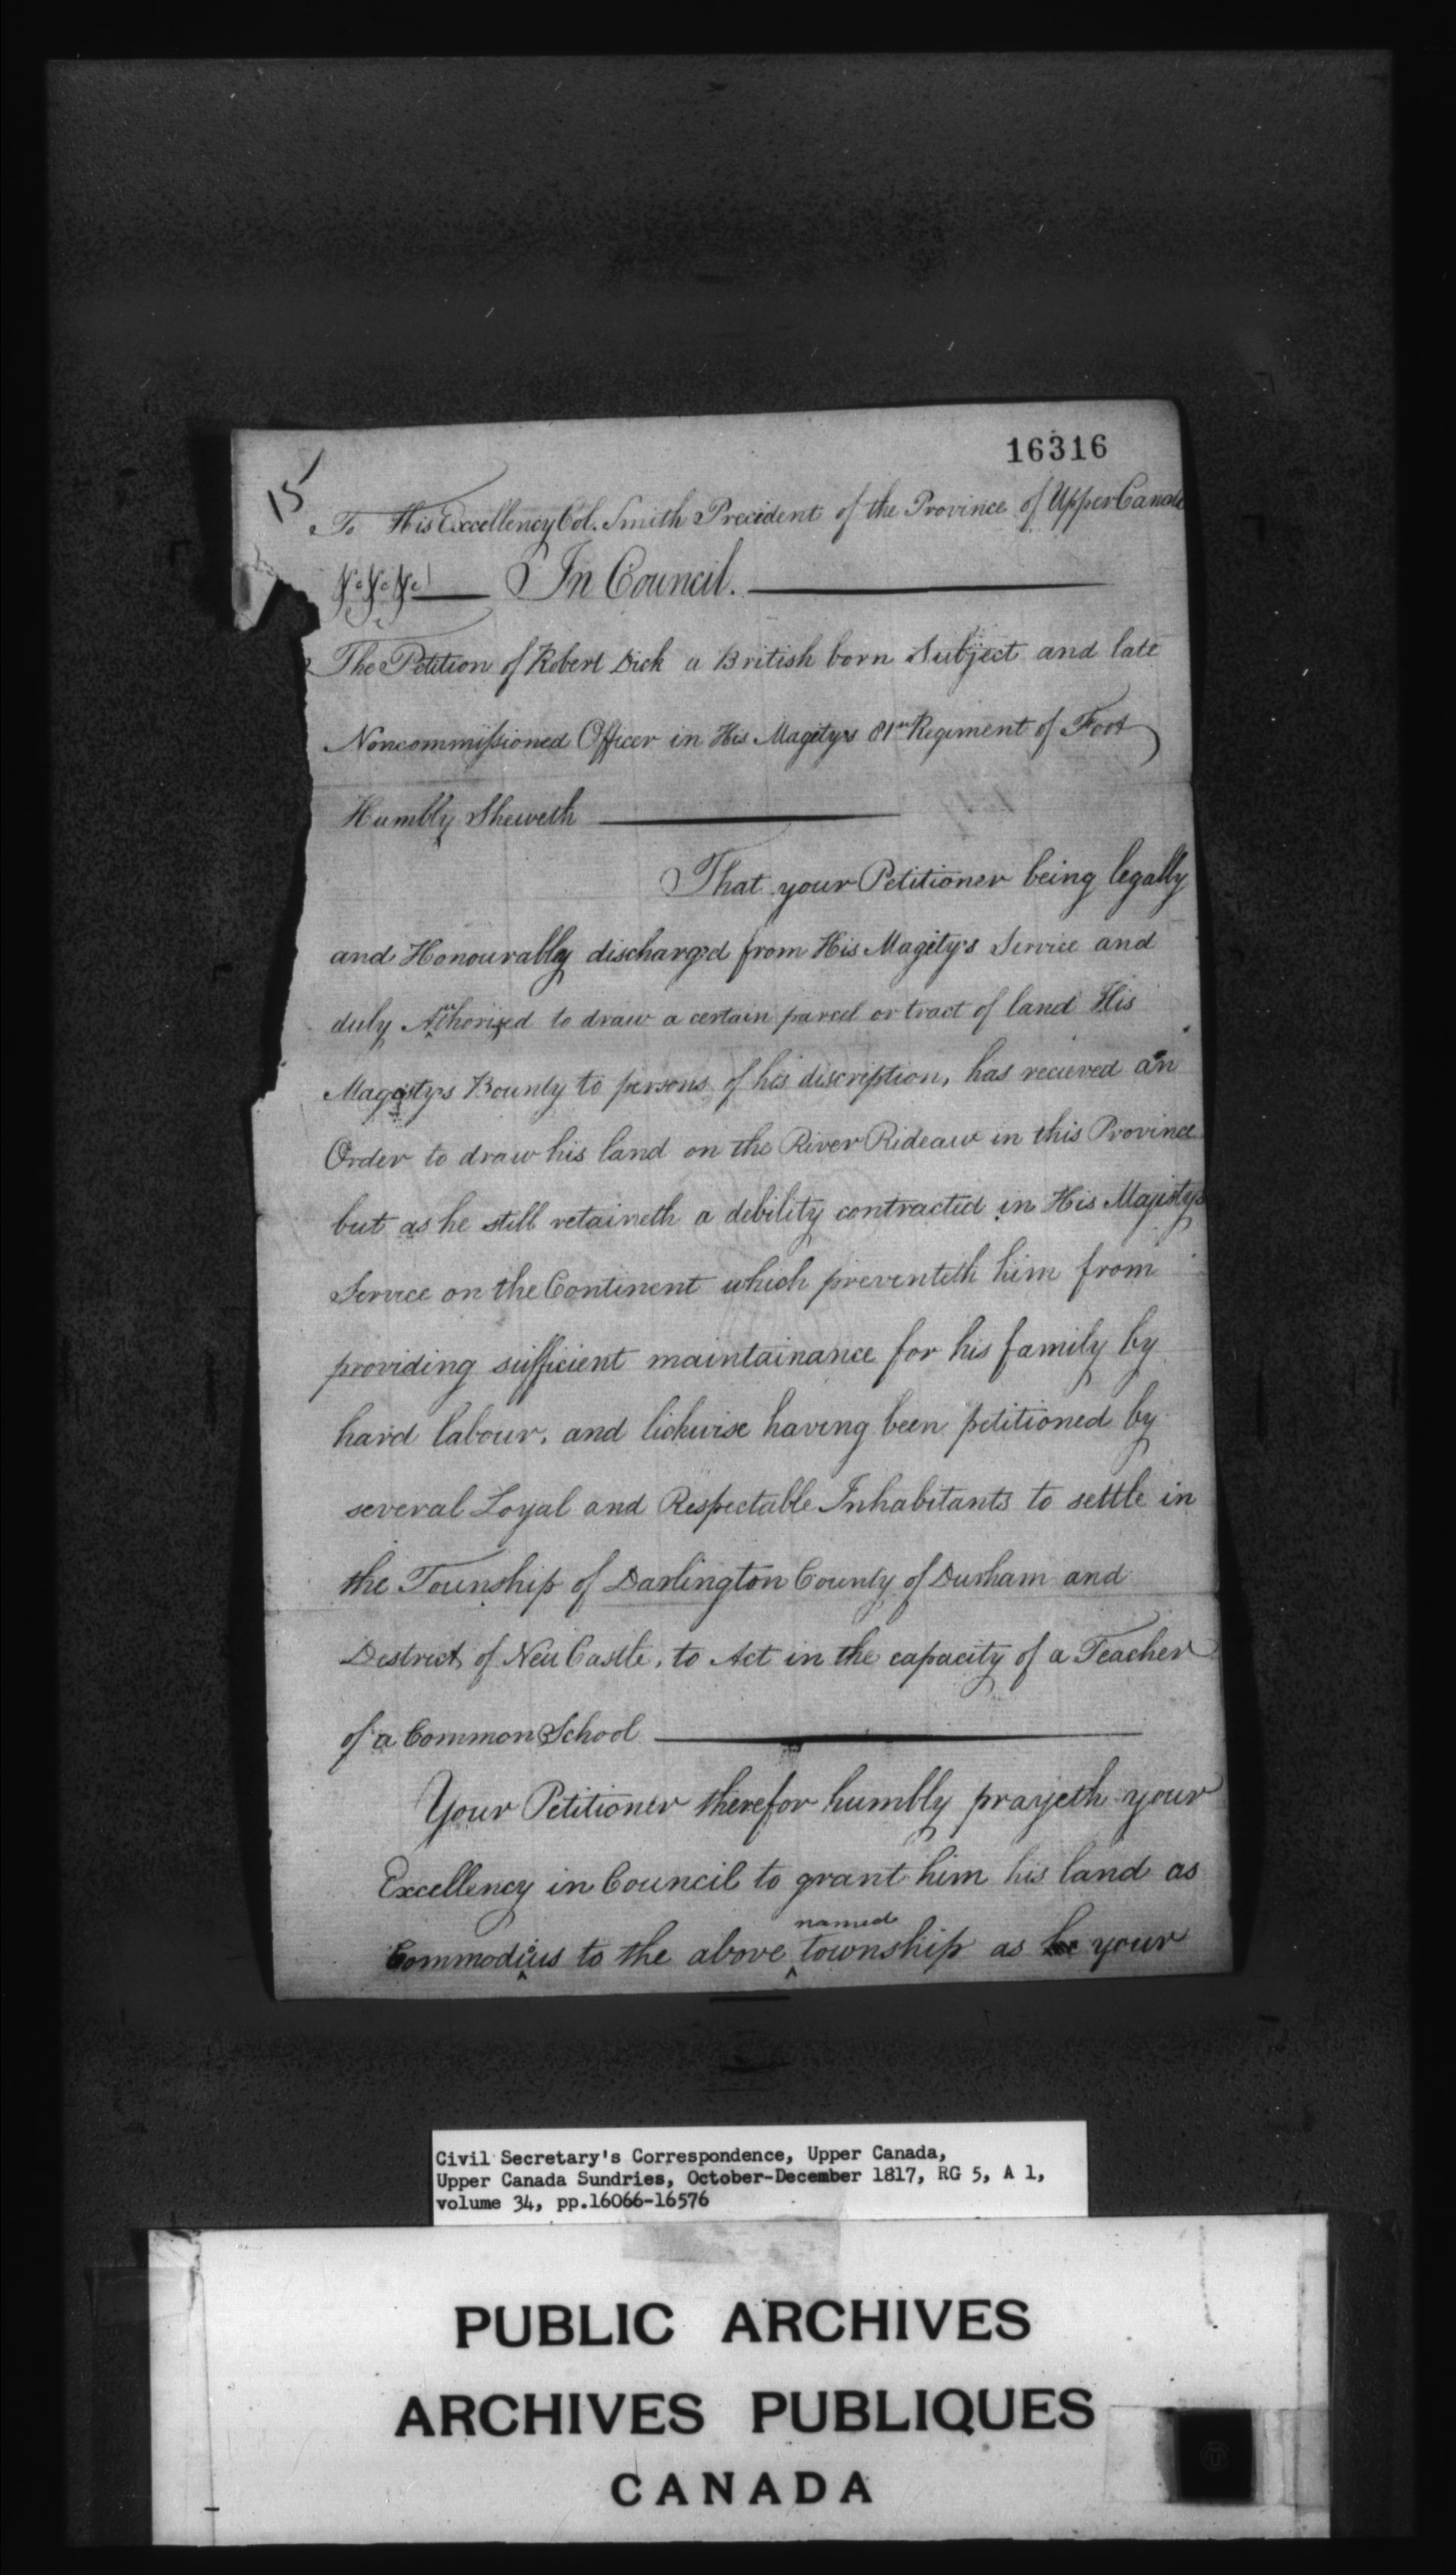 16316
15
To His Excellency Col. Smith Precident of the Province of Upper Canada
&c &c &c In Council.
The Petition of Robert Dick a British born Subject and late
Noncommissioned Officer in His Magitys 81st Regiment of Foot
Humbly Sheweth
That your Petitioner being legally
and Honourably discharged from His Magity's Service and
duly Authorised to draw a certain parcel or tract of land His
Magistys Bounty to persons of his discription, has recieved an
Order to draw his land on the River Rideaw in this Province
but as he still retaineth a debility contracted in His Majistys
Service on the Continent which preventeth him from
providing sufficient maintainance for his family by
hard labour, and lickwise having been petitioned by
several Loyal and Respectable Inhabitants to settle in
the Township of Darlington County of Durham and
District of New Castle, to Act in the capacity of a Teacher
of a Common School
Your Petitioner therefor humbly prayeth your
Excellency in Council to grant him his land as
Commodius to the above named township as your
Civil Secretary's Correspondence, Upper Canada,
Upper Canada Sundries, October-December 1817, RG 5, A 1,
volume 34, pp.16066-16576
PUBLIC ARCHIVES
ARCHIVES PUBLIQUES
CANADA